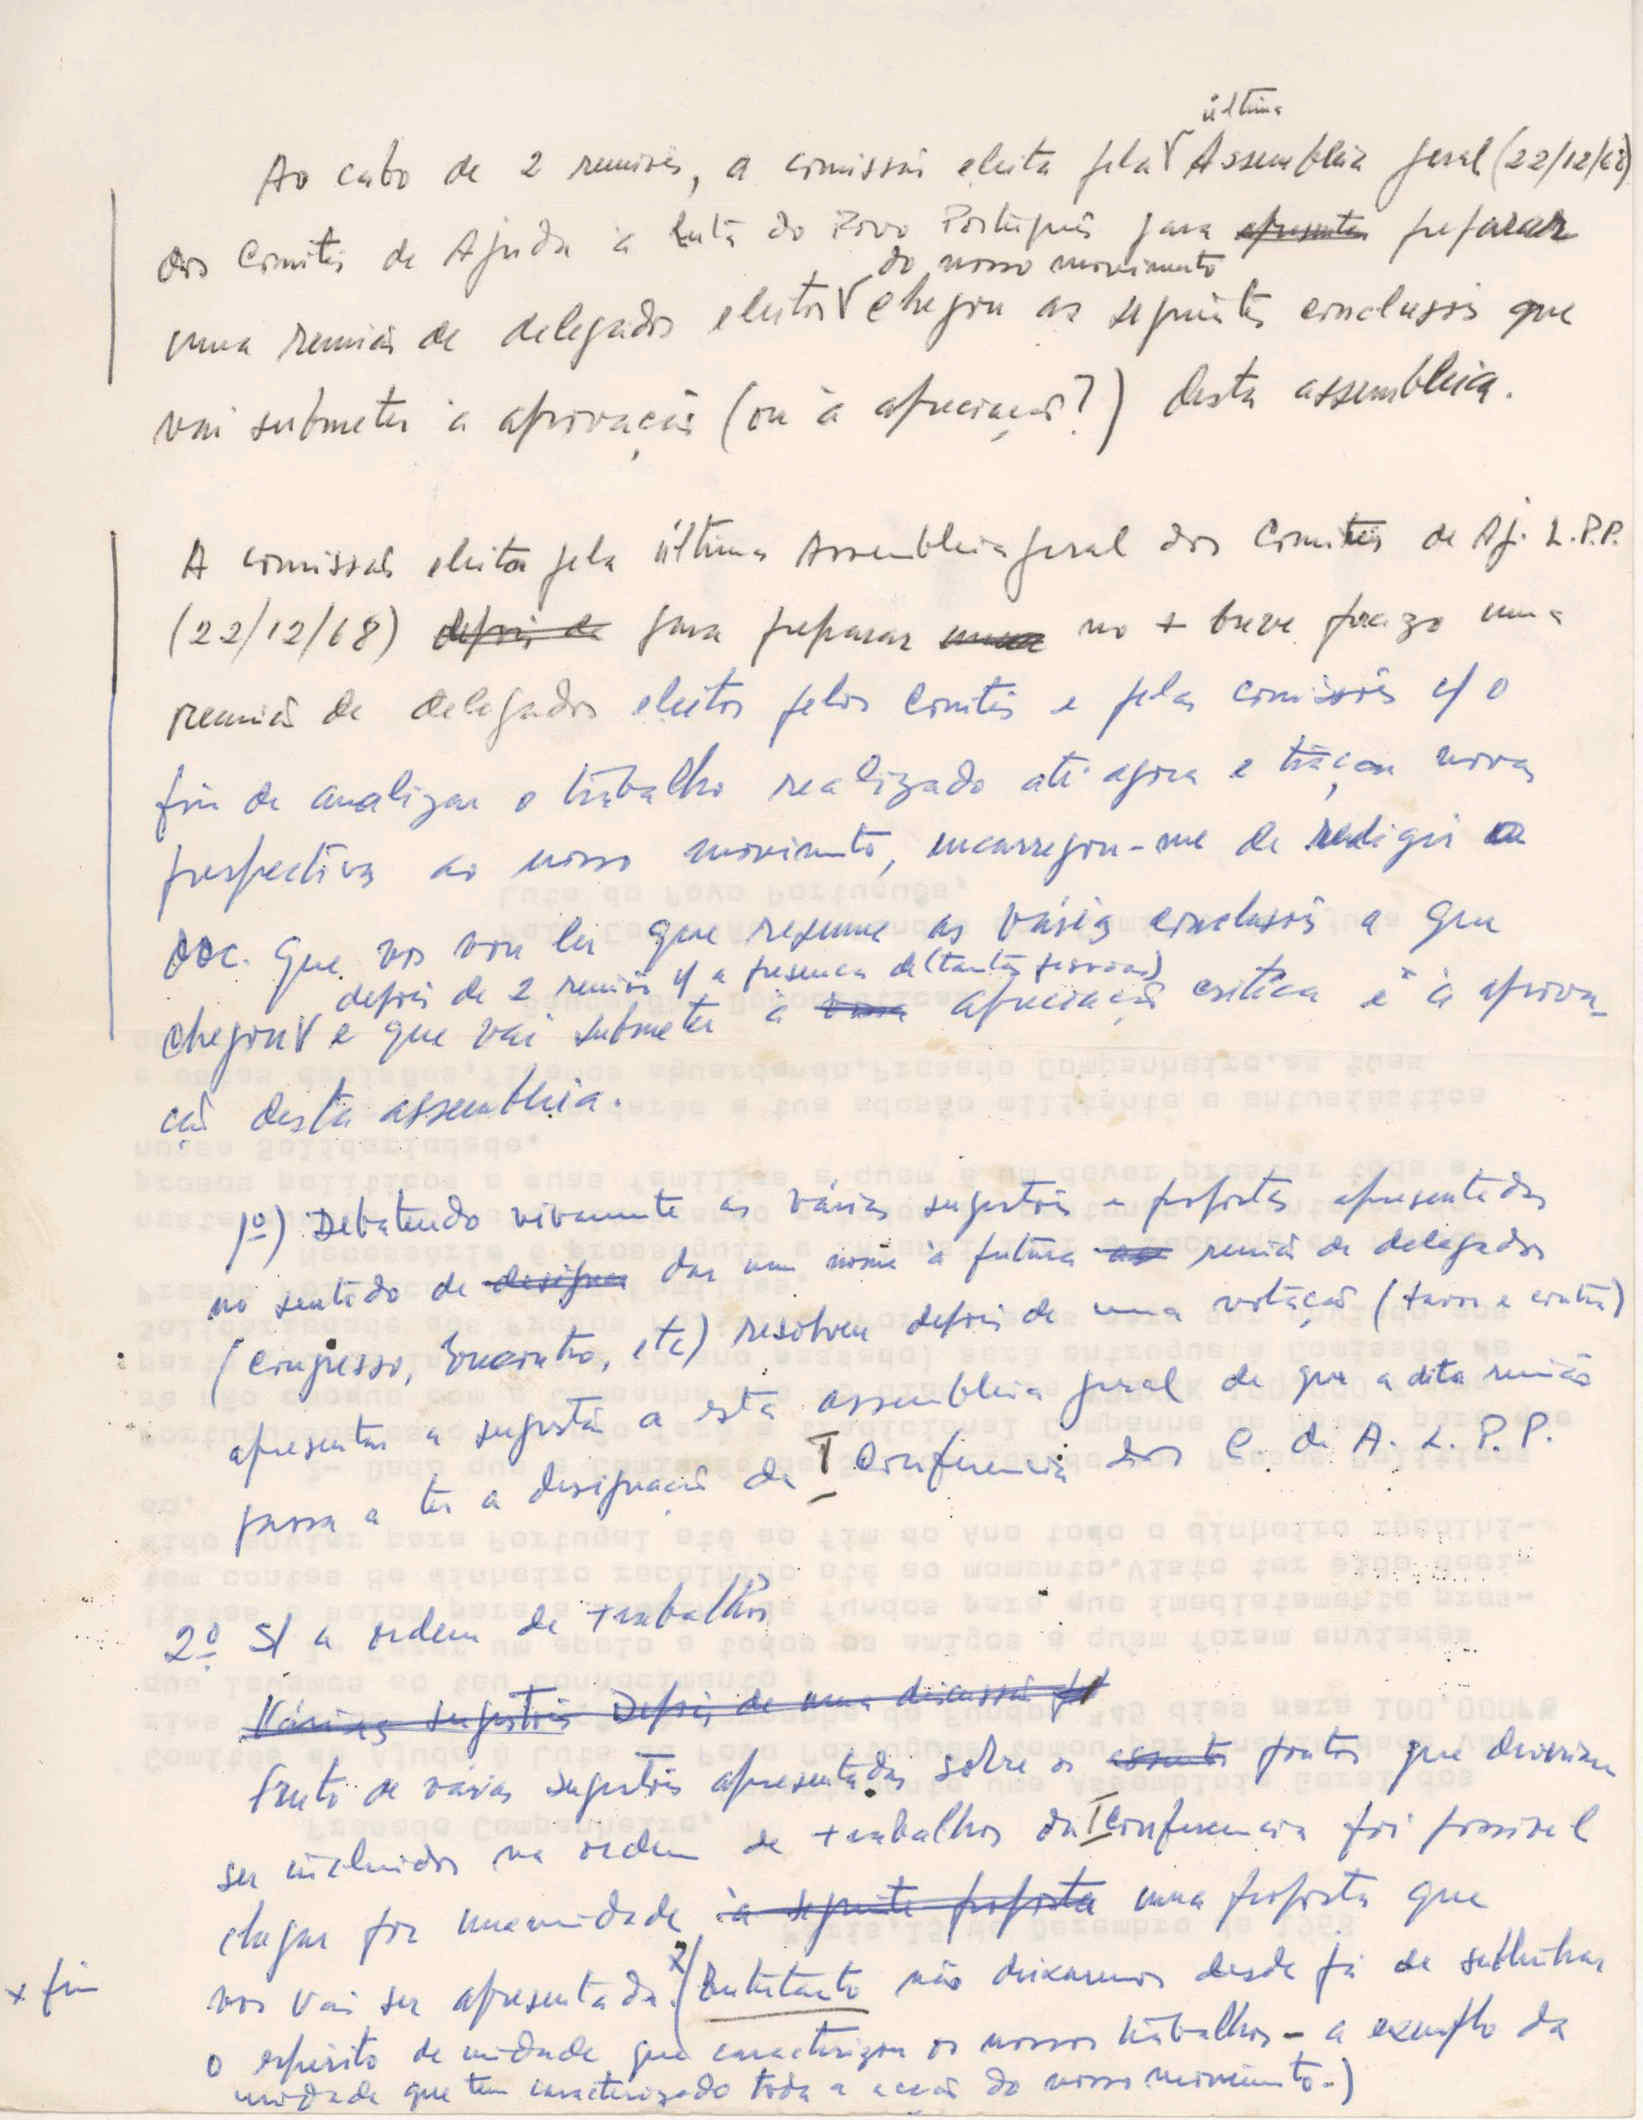 última
Ao cabo de 2 reuniões, a comissão eleita pela Assembleia geral (22/12/68)
dos Comités de Ajuda à Luta do Povo Português para apresentar preparar
do nosso movimento
uma reunião de delegados eleitos chegou as seguintes conclusões que
vai submeter à aprovação (ou à apreciação?) desta assembleia.
A comissão eleita pela última Assembleia geral dos Comités de Aj. L.P.P.
(22/12/68) depois de para preparar uma no + breve prazo uma
reunião de delegados eleitos pelos Comités e pelas comissões c/ o
fim de analizar o trabalho realizado até agora e traçar novas
perspectivas ao nosso movimento, encarregou-me de redigir o
doc. que vos vou ler que resume as várias conclusões a que
depois de 2 reuniões c/ a presença de (tantas pessoas)
chegou e que vai submeter à apreciação crítica e à aprova-
ção desta assembleia.
1º) Debatendo vivamente as várias sugestões e propostas apresentadas
no sentido de designar dar um nome à futura reunião de delegados
(Congresso, Encontro, etc) resolveu depois de uma votação (favor e contra)
apresentar a sugestão a esta assembleia geral de que a dita reunião
passa a ter a designação de I Conferencia dos C. de A. L. P. P.
2º s/ a ordem de trabalhos
Várias sugestões Depois de uma discussão
Fruto de várias sugestões apresentadas sobre os assuntos pontos que deveriam
ser incluidos na ordem de trabalhos da I Conferencia foi possivel
chegar por unanimidade à seguinte proposta uma proposta que
x fim
vos vai ser apresentada. x/ (Entretanto não deixaremos desde já de sublinhar
o espirito de unidade que caracterizou os nossos trabalhos - a exemplo da
unidade que tem caracterizado toda a acção do nosso movimento.)